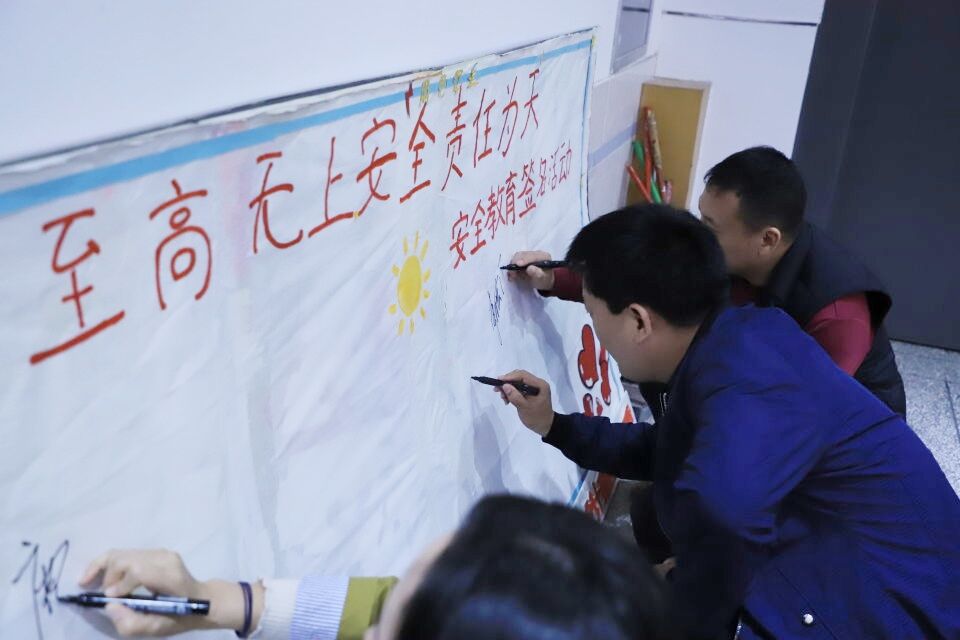 至高无上安全责任为天
安全教育签名活动